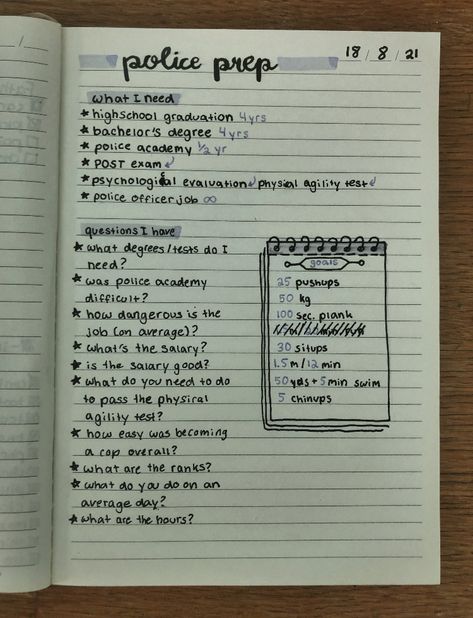 police prep
18 / 8 / 21
what I need
★ highschool graduation 4yrs
★ bachelor's degree 4yrs
★ police academy 1/2 yr
★ POST exam ↲
★ psychological evaluation ↲ physical agility test ↲
★ police officer job ∞
questions I have
★ what degrees/tests do I
need?
★ was police academy
difficult?
★ how dangerous is the
job (on average)?
★ what's the salary?
★ is the salary good?
★ what do you need to do
to pass the physical
agility test?
★ how easy was becoming
a cop overall?
★ what are the ranks?
★ what do you do on an
average day?
★ what are the hours?
goals
25 pushups
50 kg
100 sec. plank
30 situps
1.5 m/12 min
50 yds + 5 min swim
5 chinups